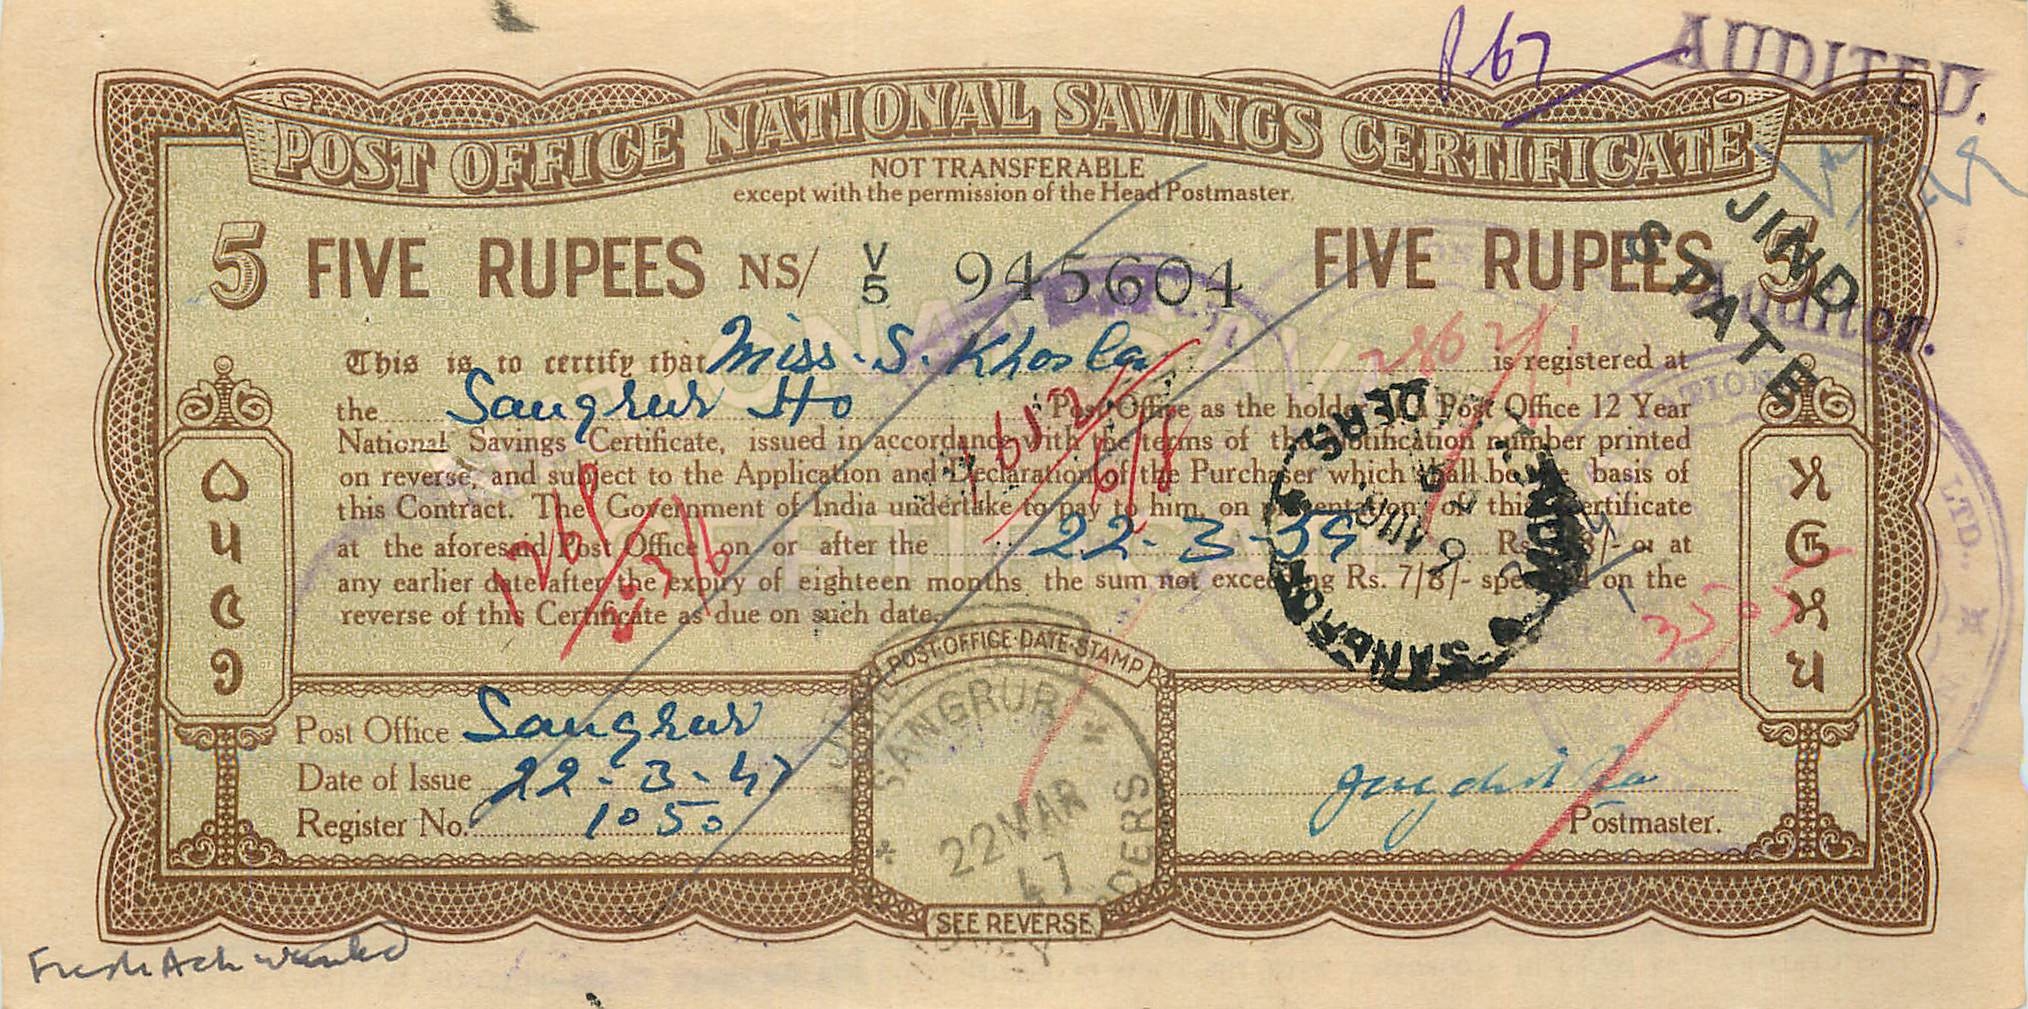 P. 67
AUDITED.
POST OFFICE NATIONAL SAVINGS CERTIFICATE
NOT TRANSFERABLE
except with the permission of the Head Postmaster.
JIND STATE
5 FIVE RUPEES NS/ V/5 945604 FIVE RUPEES 5
Auditor.
This is to certify that Miss. S. Khosla is registered at
the Sangrur Ho Post Office as the holder of a Post Office 12 Year
National Savings Certificate, issued in accordance with the terms of the Notification number printed
on reverse, and subject to the Application and Declaration of the Purchaser which shall be the basis of
this Contract. The Government of India undertake to pay to him, on presentation of this Certificate
at the aforesaid Post Office on or after the 22-3-59 Rs. 7/8/- or at
any earlier date after the expiry of eighteen months the sum not exceeding Rs. 7/8/- specified on the
reverse of this Certificate as due on such date.
POST·OFFICE·DATE·STAMP
Post Office Sangrur
Date of Issue 22-3-47
Register No. 1050
SANGRUR
22 MAR
47
Postmaster.
SEE REVERSE